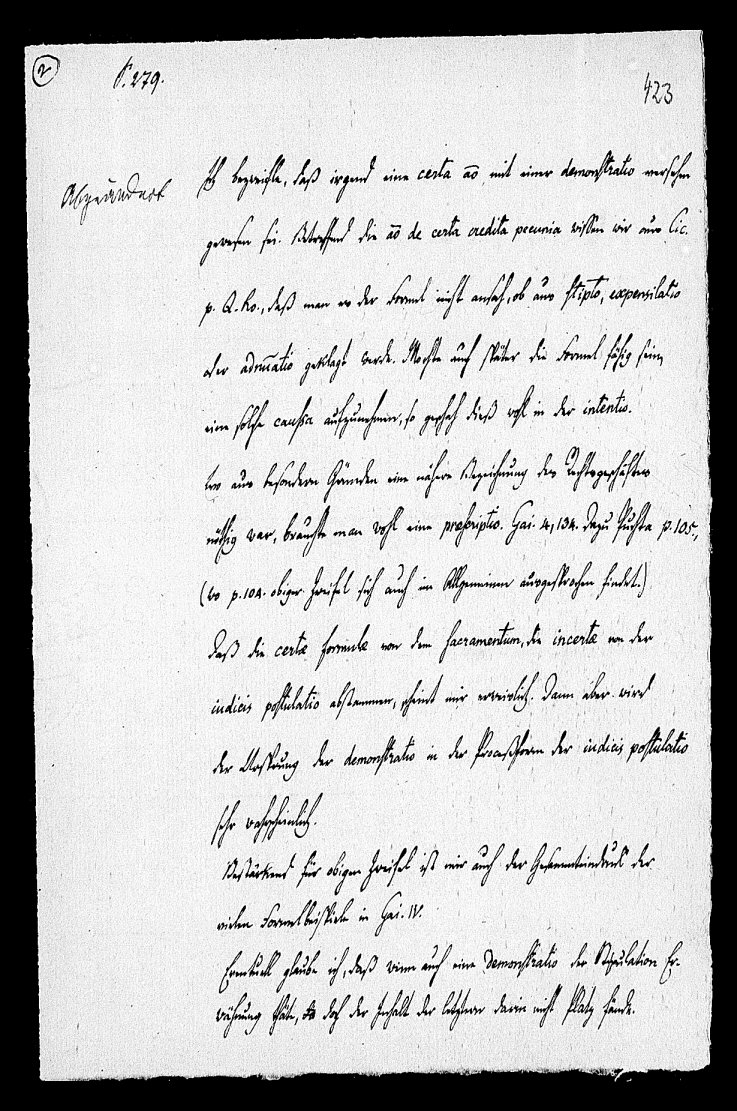 2
S. 279.
423
Abgeändert
Ich bezweifle, daß irgend eine certa ao, mit einer demonstratio versehen
gewesen sei. Betreffend die ao de certa credita pecunia wissen wir aus Cic.
p. Q. Ro., daß man es der Formel nicht ansah, ob aus stipto, expensilatio
oder adnuatio geklagt werde. Mochte auch später die Formel fähig sein,
eine solche caussa aufzunehmen, so geschah dieß wohl in der intentio.
Wo aus besondern Gründen eine nähere Bezeichnung des Rechtsgeschäftes
nöthig war, brauchte man wohl eine praescriptio. Gai. 4,134. Dazu Puchta p. 105.,
(wo p. 104. obiger Zweifel sich auch im Allgemeinen ausgesprochen findet.)
Daß die certæ formulæ von dem sacramentum, die incertæ von der
iudicis postulatio abstammen, scheint mir erweislich. Dann aber wird
der Ursprung der demonstratio in der Proceßform der iudicis postulatio
sehr wahrscheinlich.
Bestärkend für obigen Zweifel ist mir auch der Gesammteindruck der
vielen Formelbeispiele in Gai. IV.
Eventuell glaube ich, daß wenn auch eine Demonstratio der Stipulation Er-
wähnung thäte, doch der Inhalt der letztern darin nicht Platz fände.